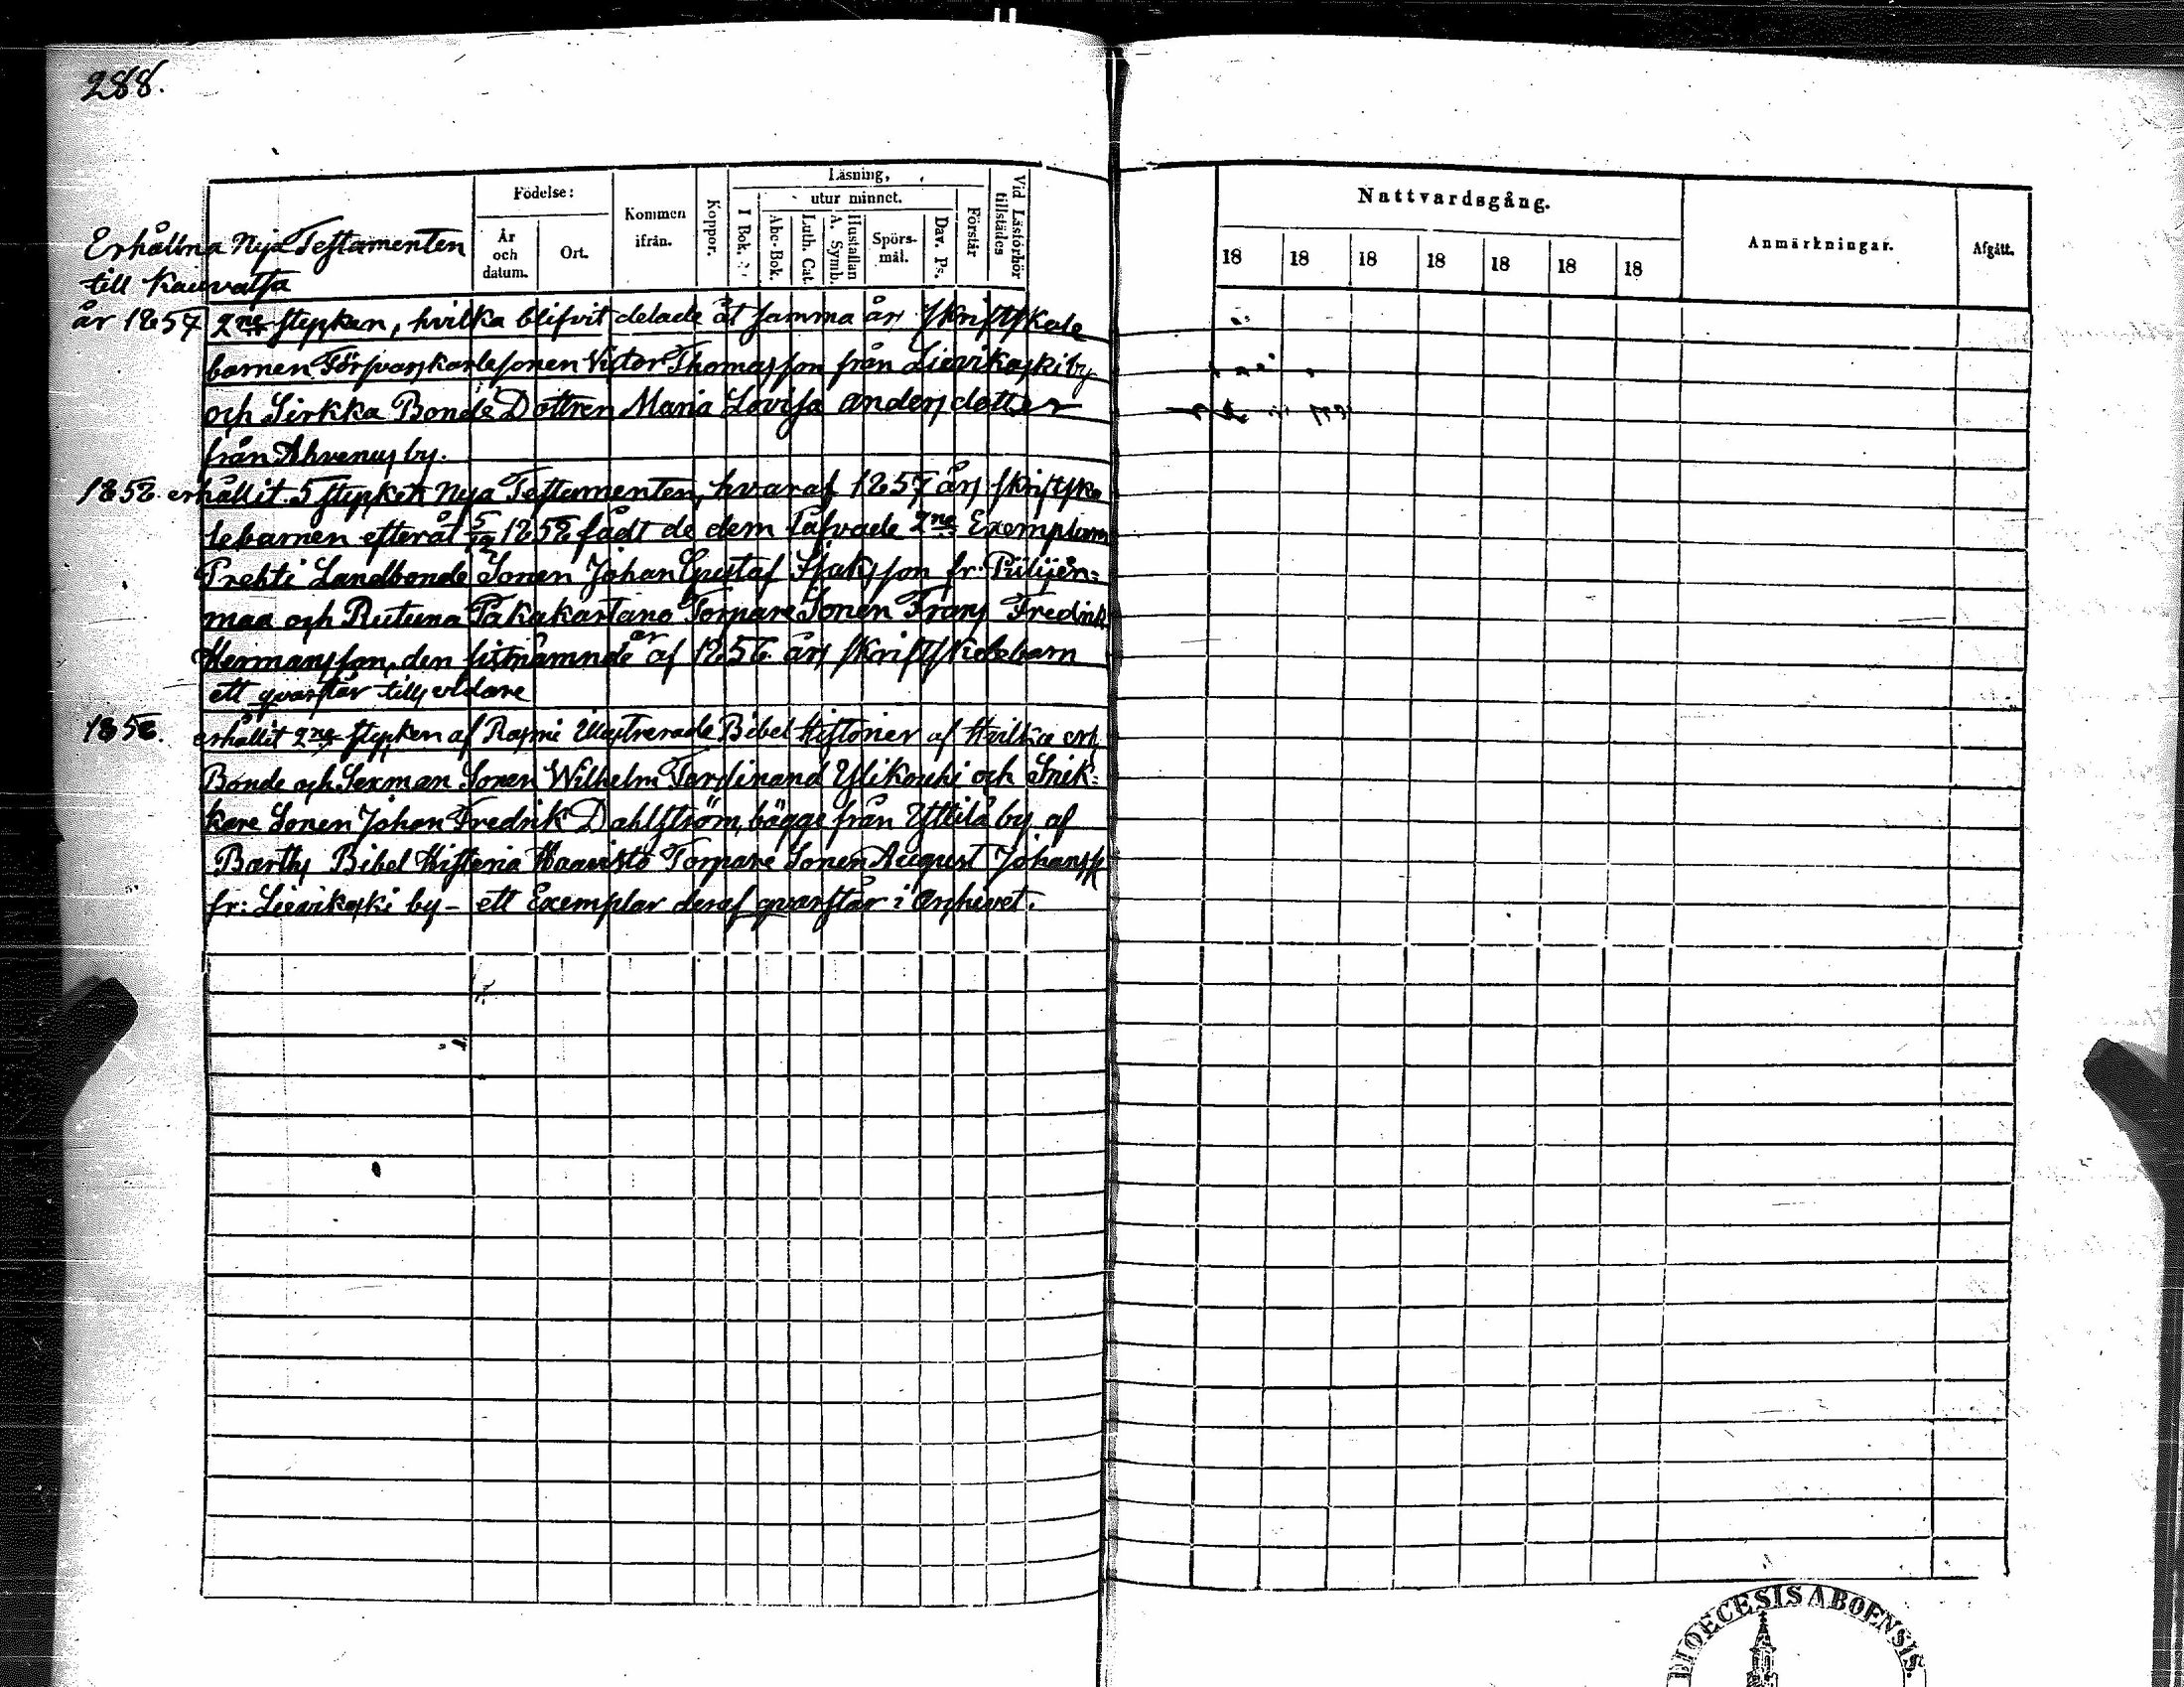 288.
Födelse:
År och datum.
Ort.
Kommen ifrån.
Koppor.
Läsning,
I Bok.
utur minnet.
Abc-Bok.
Luth. Cat.
Hustaflan A. Symb.
Spörs-mål.
Dav. Ps.
Förstår
Vid Läsförhör tillstädes
Nattvardsgång.
18 18 18 18 18 18 18
Anmärkningar.
Afgått.
Erhållna Nya Testamenten
till Kauvatsa
år 1857 2ne stycken, hvilka blifvit delade åt samma års skriftskole
barnen Försvarskarlesonen Victor Thomasson från Lievikoski by
och Sirkka Bonde Dottren Maria Lovisa Andersdotter
från Ahvenus by.
1858. erhållit 5 stycken Nya Testamenten, hvaraf 1857 års skriftsko
lebarnen efteråt 5/12 1858 fådt de dem lofvade 2ne Exemplaren
Prehti Landbonde Sonen Johan Gustaf Isaksson fr: Piilijen=
maa och Rutuna Takakartano Torpare Sonen Frans Fredrik
Hermansson, den sistnämnde är af 1856 års skriftskolebarn
ett qvarstår tills vidare
1858. erhållit 2ne stycken af Illustrerade Bibel Historier af Hvilka erh.
Bonde och Sexman Sonen Wilhelm Ferdinand Ylikouhi och Snik=
kare Sonen Johan Fredrik Dahlström, bägge från Yttilä by, af
Barths Bibel Historia Haavisto Torpare Sonen August Johanss
fr: Lievikoski by - ett Exemplar deraf qvarstår i Archivet.
DIOECESIS ABOENSIS.